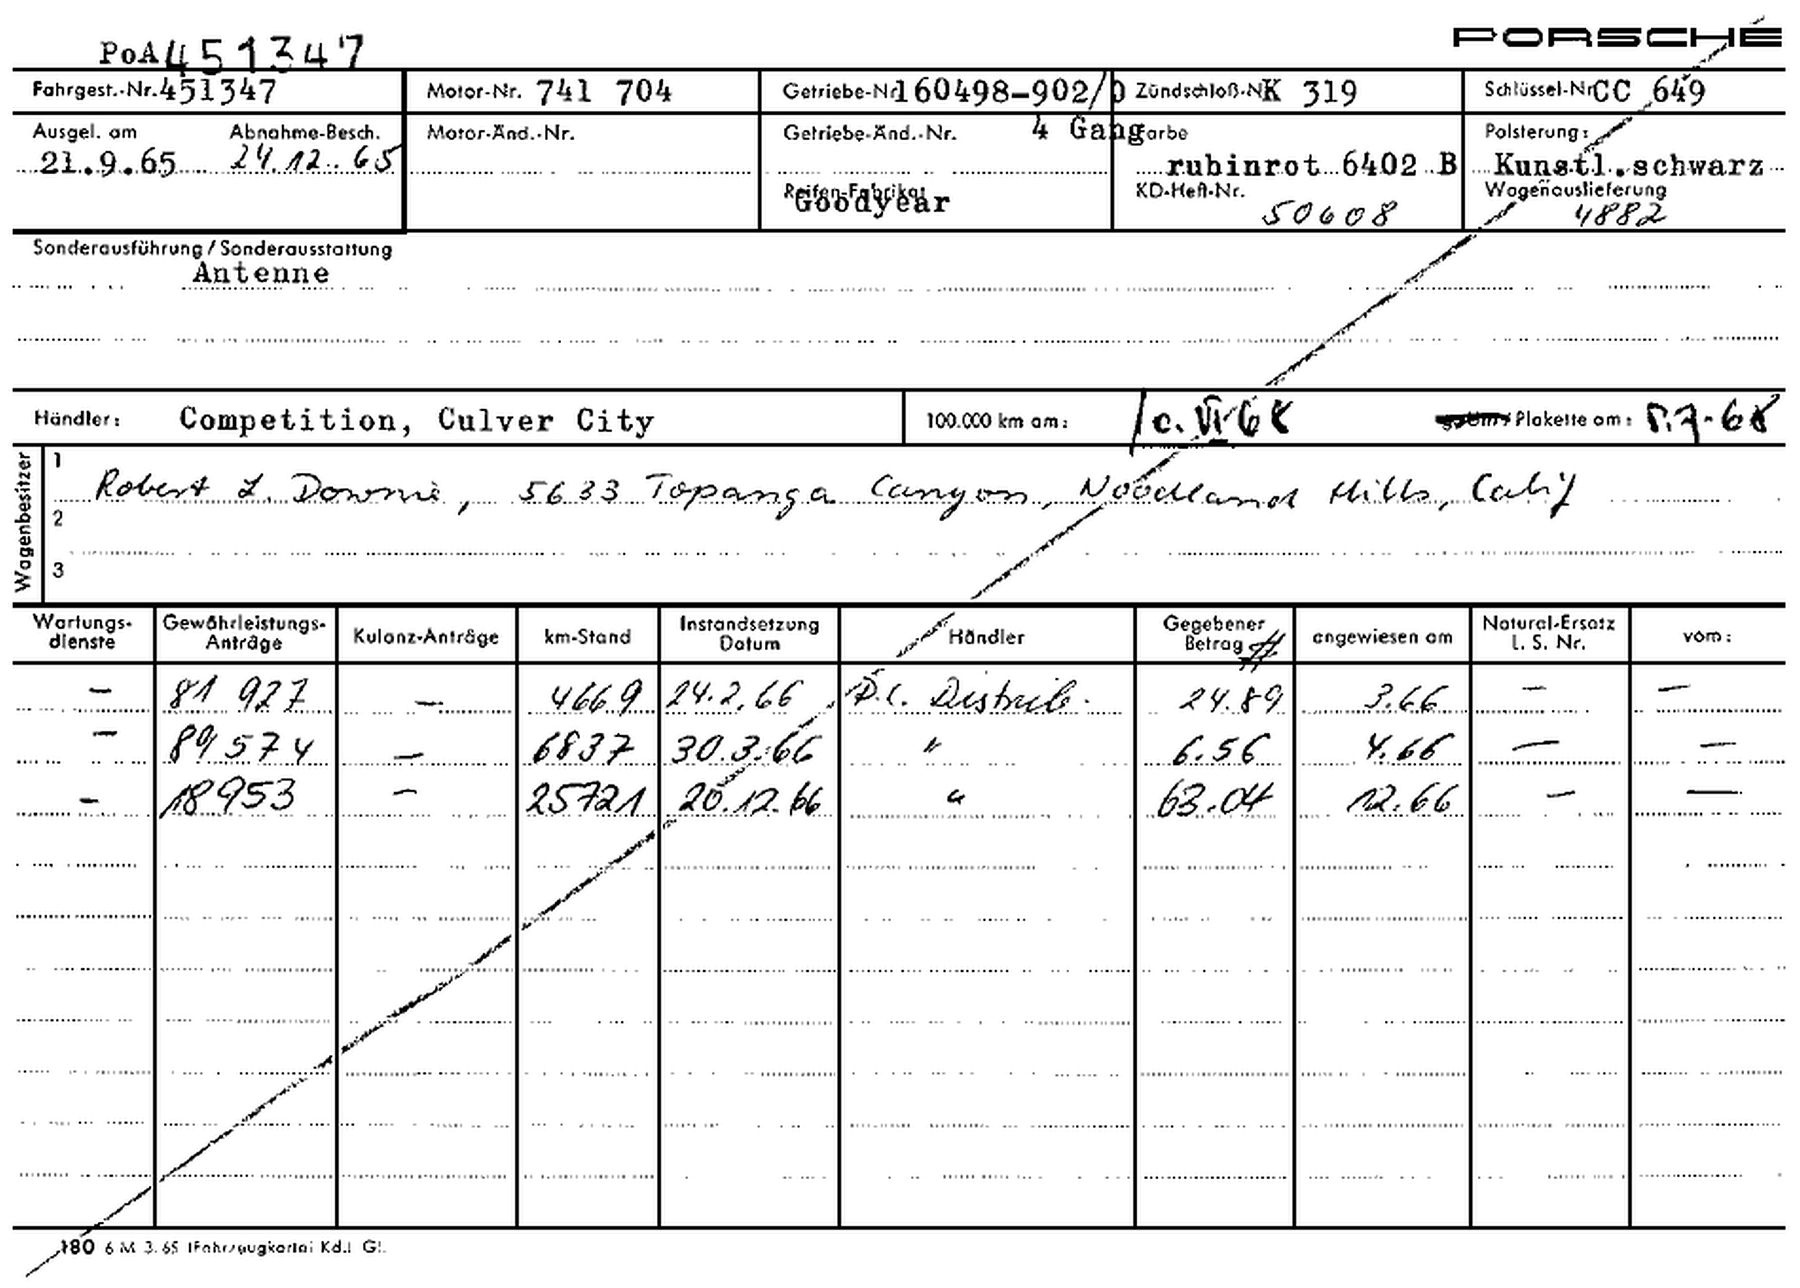 PoA 451347
PORSCHE
Fahrgest.-Nr. 451347 Motor-Nr. 741 704 Getriebe-Nr 160498-902/0 Zündschloß-N K 319 Schlüssel-Nr CC 649
Ausgel. am Abnahme-Besch. Motor-Änd.-Nr. Getriebe-Änd.-Nr. 4 Gang Farbe Polsterung:
21.9.65 24.12.65 rubinrot 6402 B Kunstl.schwarz
Reifen-Fabrikat KD-Heft-Nr. Wagenauslieferung
Goodyear 50608 4882
Sonderausführung / Sonderausstattung
Antenne
Händler: Competition, Culver City 100.000 km am: c. VI 68 Plakette am: 8.7.68
Wagenbesitzer
1
Robert L. Downie, 5633 Topanga Canyon, Woodland Hills, Calif
2
3
Wartungs- Gewährleistungs- Kulanz-Anträge km-Stand Instandsetzung Händler Gegebener angewiesen am Natural-Ersatz vom:
dienste Anträge Datum Betrag # I. S. Nr.
— 81 927 — 4669 24.2.66 P.C. Distrib. 24.89 3.66 — —
— 89 574 — 6837 30.3.66 " 6.56 4.66 — —
— 18953 — 25721 20.12.66 " 63.04 12.66 — —
180 6 M 3.65 (Fahrzeugkartei Kd.)